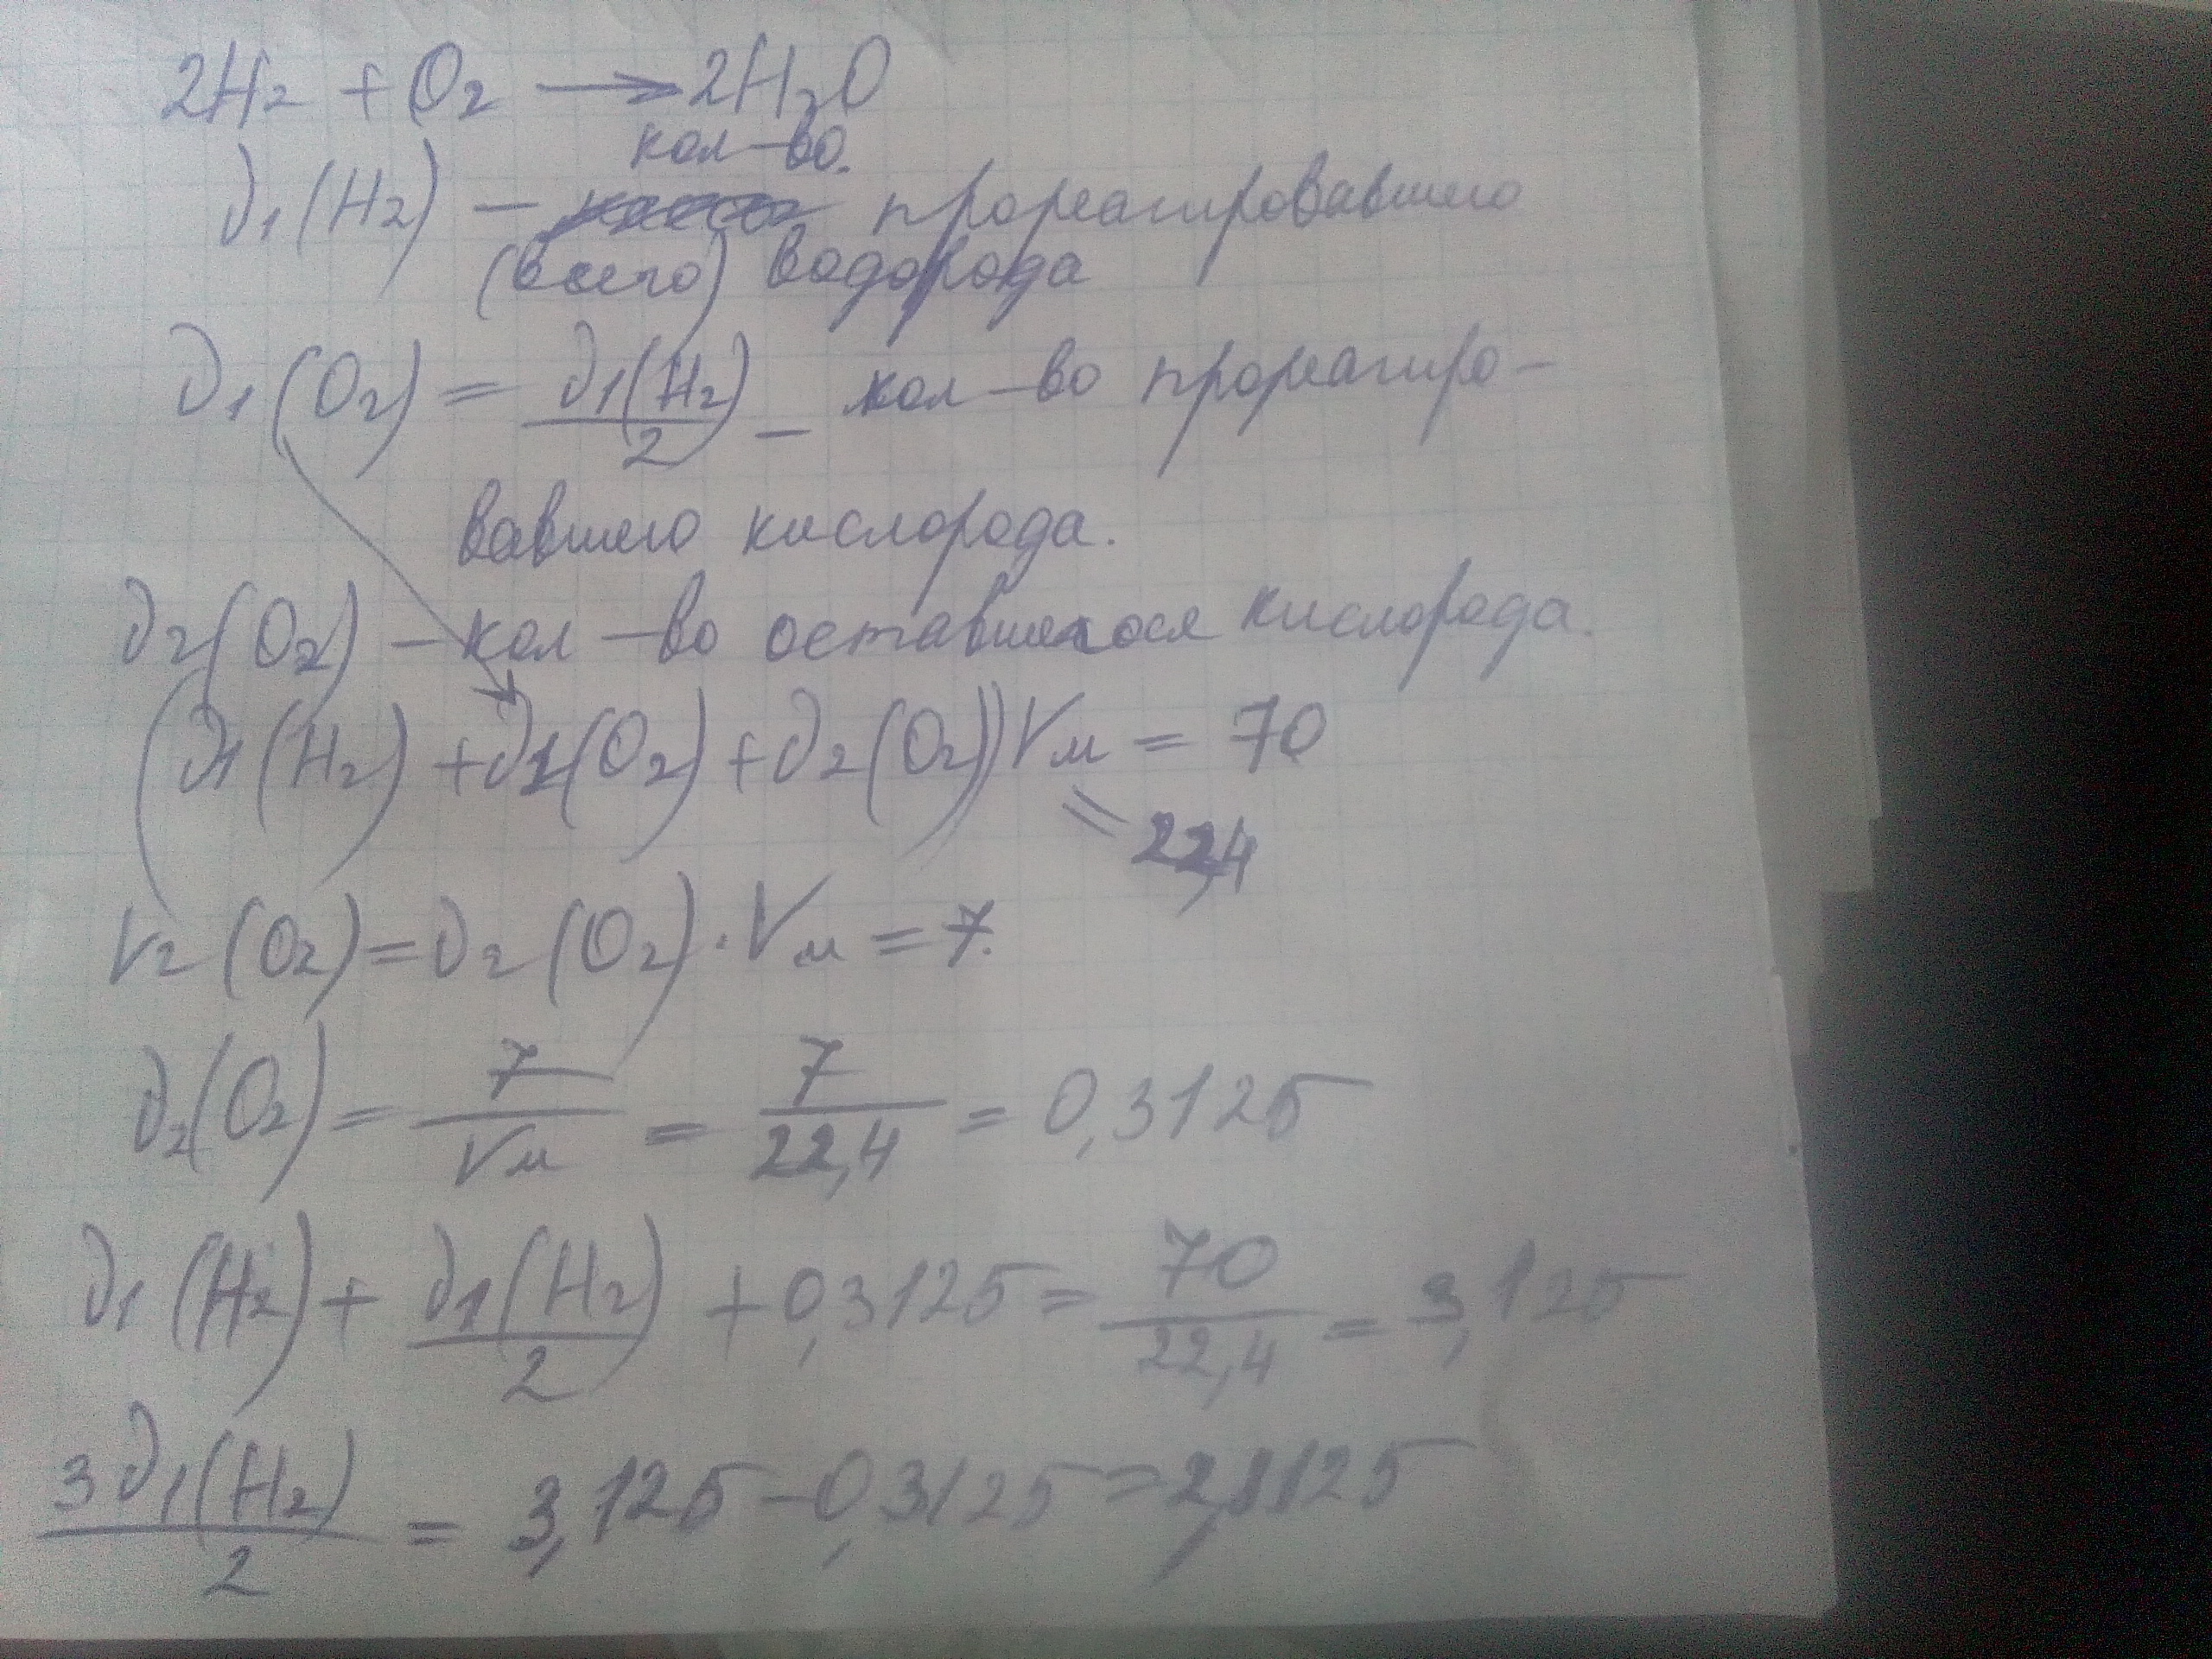 2H₂ + O₂ → 2H₂O
кол-во.
ν₁(H₂) – прореагировавшего
(всего) водорода
ν₁(O₂) = ν₁(H₂)/2 – кол-во прореагиро-
вавшего кислорода.
ν₂(O₂) – кол-во оставшегося кислорода.
(ν₁(H₂) + ν₁(O₂) + ν₂(O₂))Vм = 70
= 22,4
V₂(O₂) = ν₂(O₂) · Vм = 7.
ν₂(O₂) = 7/Vм = 7/22,4 = 0,3125
ν₁(H₂) + ν₁(H₂)/2 + 0,3125 = 70/22,4 = 3,125
3ν₁(H₂)/2 = 3,125 – 0,3125 = 2,8125